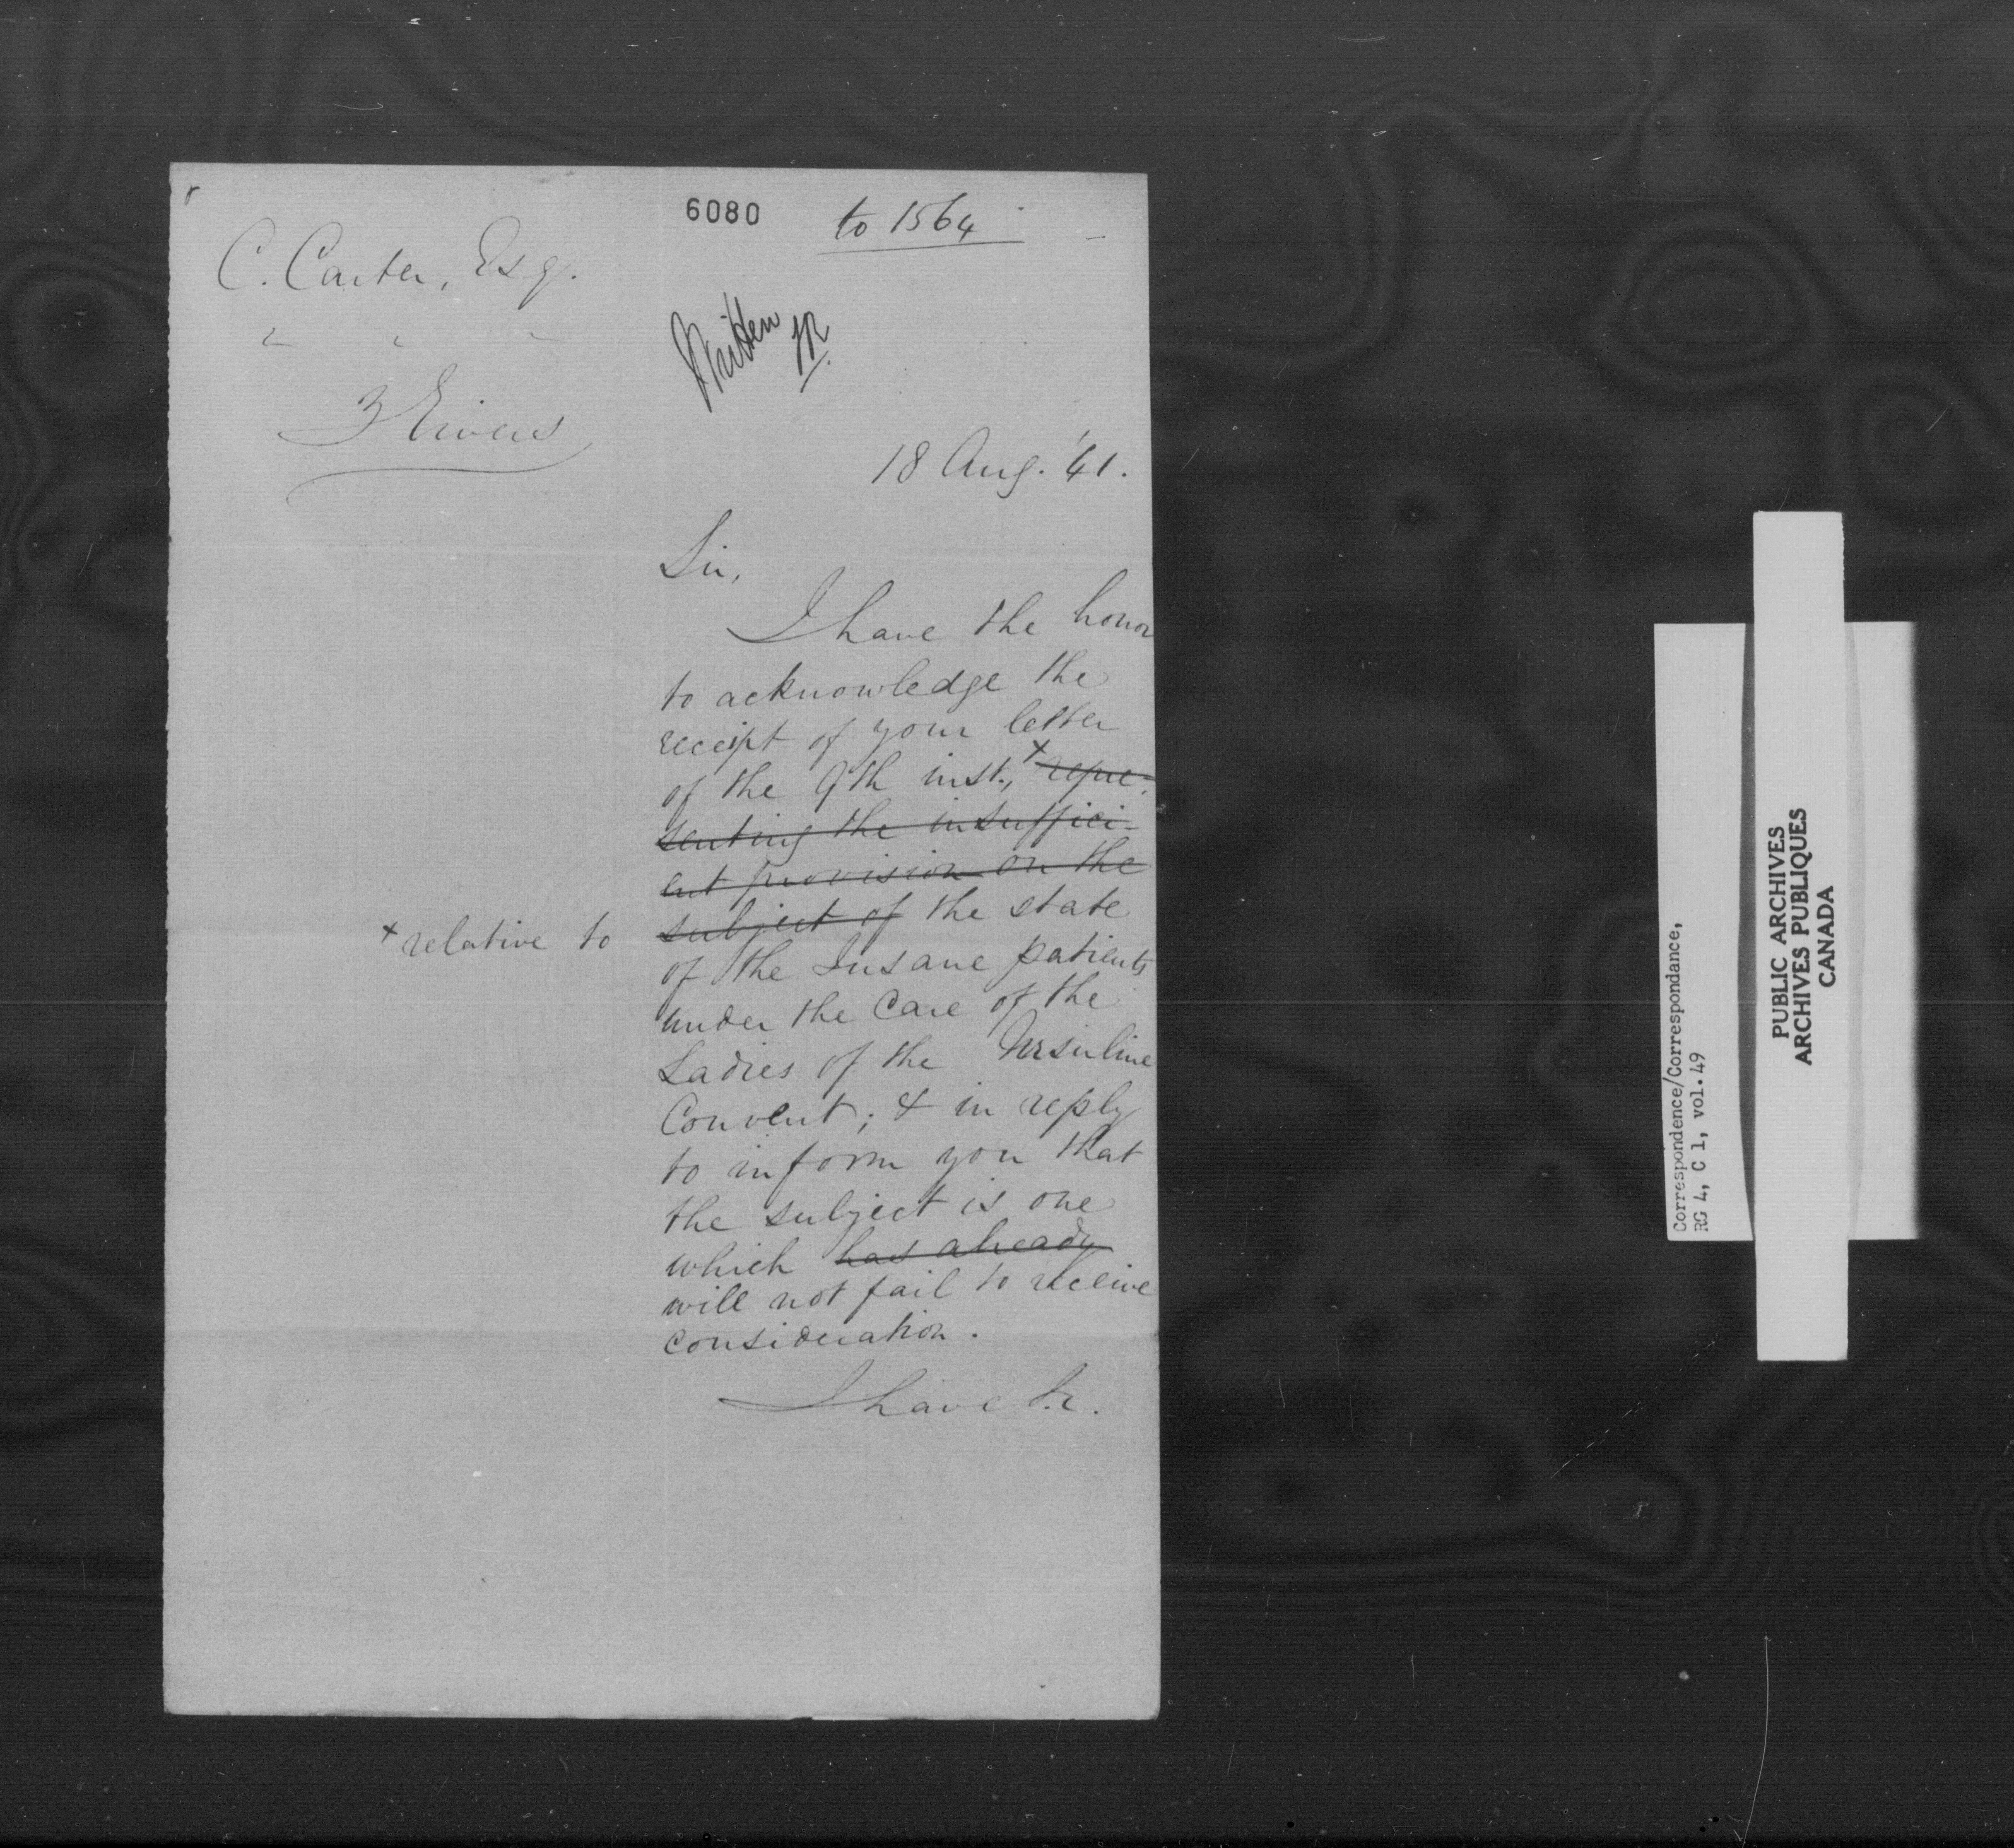 6080 to 1564
C. Carter, Esq.
" " "
3 Rivers
Written
18 Aug. '41.
Sir,
I have the honor
to acknowledge the
receipt of your letter
of the 9th inst., + repre-
senting the insuffici-
ent provision on the
subject of the state
+ relative to
of the Insane patients
under the Care of the
Ladies of the Ursuline
Convent; & in reply
to inform you that
the subject is one
which has already
will not fail to receive
consideration.
I have &c.
Correspondence/Correspondance,
RG 4, C 1, vol.49
PUBLIC ARCHIVES
ARCHIVES PUBLIQUES
CANADA